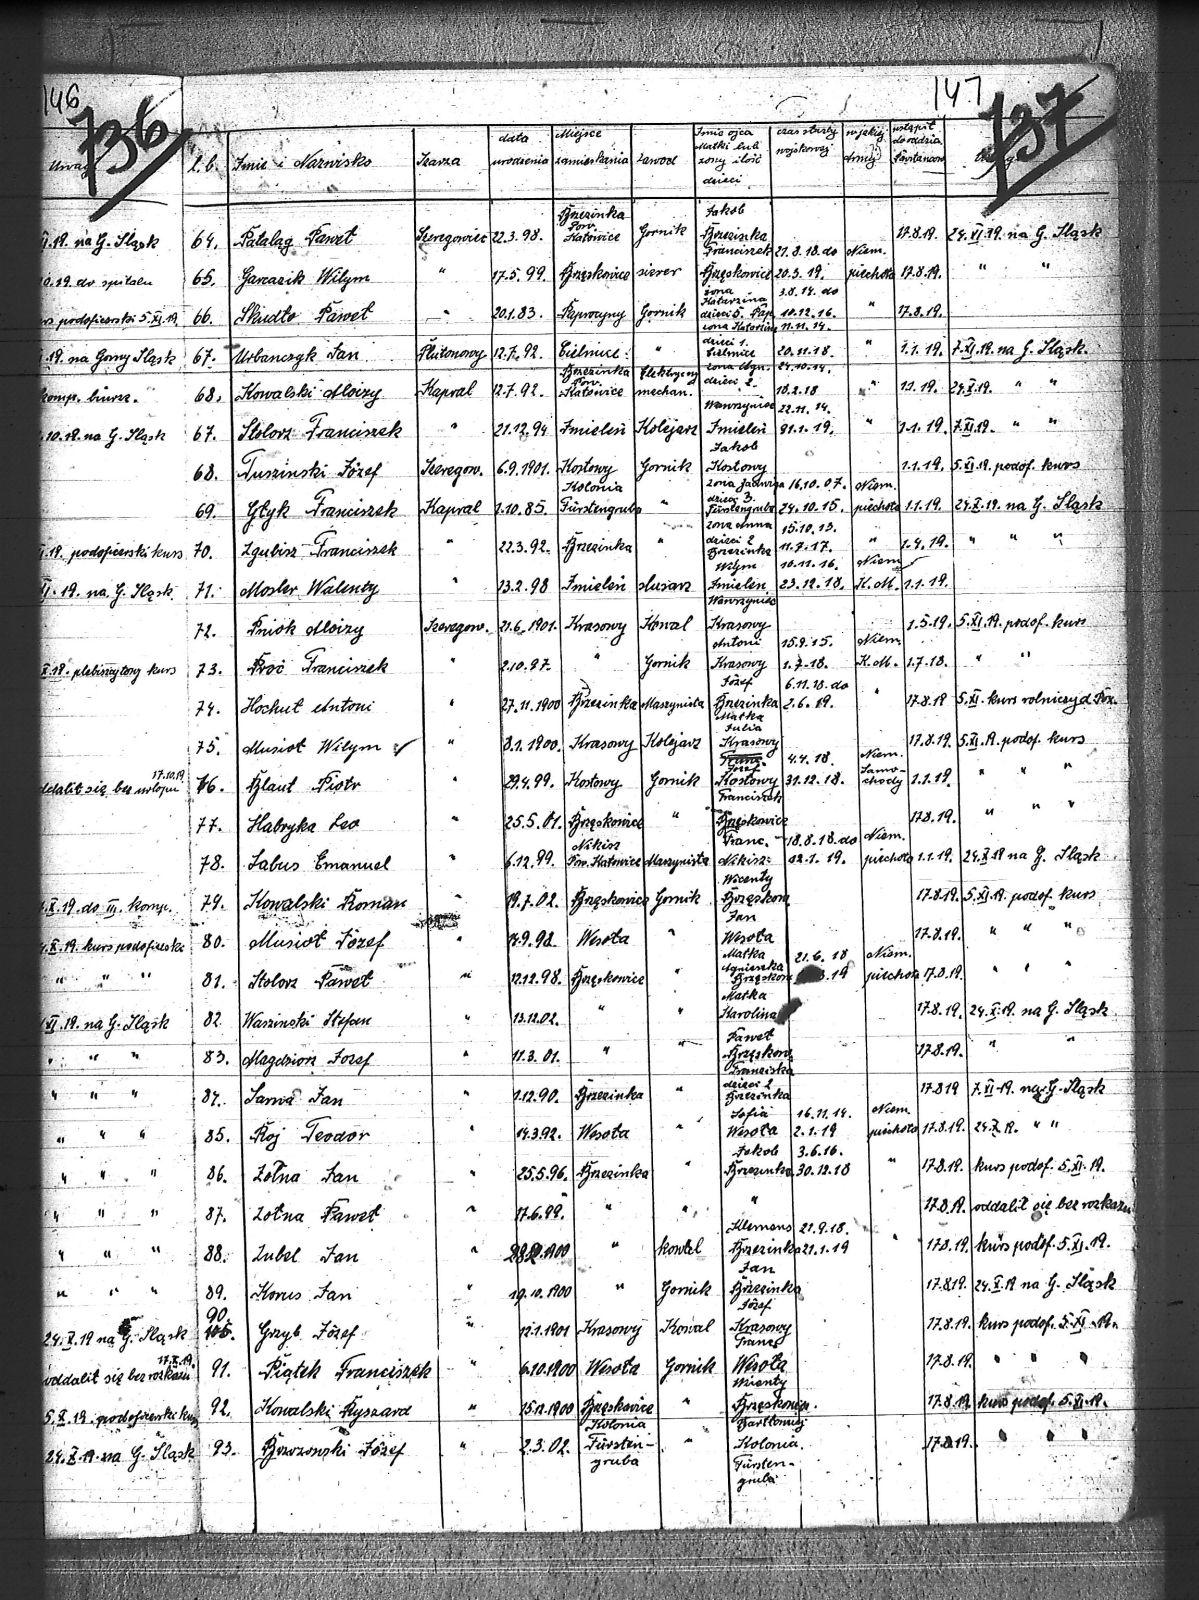 146
736
147
737
Uwagi
L.b. Imie i Nazwisko Szarża data urodzenia Miejsce zamieszkania zawod Imie ojca Matki lub żony ilość dzieci czas służby wojskowej w jakiej Armji wstąpił do oddzia. Powstańcow Uwagi
64. Palalag Paweł Szeregowiec 22.3.98. Brzezinka Pow. Katowice Gornik Jakob Brzezinka 17.8.19. 24.VI.19. na G. Sląsk
65. Garcazik Wilym " 17.5.99. Brzęskowice siewer Franciszek Brzęskowice 21.8.18.do 20.3.19. Niem. piechota 17.8.19. " "
66. Skudło Paweł " 20.1.83. Paprocyny Gornik żona Katarzina dzieci 5. Pap. 3.8.14. do 10.12.16. " 17.8.19.
67. Urbanczyk Jan Plutonowy 12.7.92. Cielmice " żona Katarina dzieci 1. Cielmice 11.11.14. 20.11.18. " 1.1.19. 7.XI.19. na G. Sląsk.
68. Kowalski Aloizy Kapral 12.7.92. Brzezinka Pow. Katowice Elektryczny mechan. żona Agn. dzieci 2. 24.10.14. 10.2.18 " 1.1.19. 24.X.19. " "
67. Stolorz Franciszek " 21.12.94 Imieleń Kolejarz Wawrzyniec Imieleń 22.11.14. 31.1.19. " 1.1.19. 7.XI.19. " "
68. Tuszinski Józef Szeregow. 6.9.1901. Kostowy Gornik Jakob Kostowy 1.1.19. 5.XI.19. podof. kurs
69. Głyk Franciszek Kapral 1.10.85. Kolonia Fürstengrube " żona Jadwiga dzieci 3. Fürstengrube 16.10.07. 24.10.15. Niem. piechota 1.1.19. 24.X.19. na G. Sląsk
70. Zgubisz Franciszek " 22.3.92. Brzezinka " żona Anna dzieci 2 Brzezinka 15.10.13. 11.7.17. " 1.4.19. " " "
71. Mosler Walenty " 13.2.98 Imieleń slusarz Wilym Imielen 10.11.16. 23.12.18. Niem. K.M. 1.1.19.
72. Pniok Aloizy Szeregow. 21.6.1901. Krasowy Kowal Wawrzyniec Krasowy 1.5.19. 5.XI.19. podof. kurs
73. Proć Franciszek " 2.10.97. " Gornik Antoni Krasowy 15.9.15. 1.7.18. Niem. K.M. 1.7.18. " "
74. Hochut Antoni 27.11.1900 Brzezinka Maszynista Józef Brzezinka 6.11.18.do 2.6.19. " 17.8.19 5.XI. kurs rolniczy
75. Musiot Wilym " 8.1.1900. Krasowy Kolejarz Matka Julia Krasowy 17.8.19. 5.XI.19. podof. kurs
76. Blaut Piotr " 29.4.99. Kostowy Gornik Józef Kostowy 4.4.18. 31.12.18. Niem. Samochody 1.1.19. " " "
77. Habryka Leo " 25.5.01. Brzęskowice " Franciszek Brzęskowice 17.8.19. " " "
78. Jabus Emanuel " 6.12.99. Nikisz Pow. Katowice Maszynista Franc. Nikisz 18.8.18.do 12.1.19. Niem. piechota 1.1.19. 24.X.19 na G. Sląsk
79. Kowalski Roman " 19.7.02. Brzęskowice Gornik Wicenty Brzęskow. 17.8.19. 5.XI.19. podof kurs
80. Musioł Józef " 14.9.98. Wesoła " Jan Wesoła 17.8.19. " " "
81. Stolorz Paweł " 12.12.98. Brzęskowice " Matka Agnieszka Brzęskow. 21.6.18 Niem. piechota 17.8.19. " " "
82 Waszinski Stefan 13.12.02. " " Matka Karolina 17.8.19. 24.X.19. na G. Sląsk
83. Magdzion Jozef " 11.3.01. " " Paweł Brzęskow. 17.8.19. " "
84. Sarna Jan 1.12.90. Brzezinka " Franciszka dzieci 2 Brzezinka 17.8.19 7.XI.19. na G. Sląsk
85. Roj Teodor " 14.3.92. Wesoła " Sofia Wesoła 16.11.14. 2.1.19 Niem. piechota 17.8.19. 24.X.19. " "
86. Zołna Jan " 25.5.96. Brzezinka " Jakob Brzezinka 3.6.16. 30.12.18 " 17.8.19. kurs podof. 5.XI.19.
87. Zołna Paweł " 17.6.99. " " " 17.8.19. oddalił się bez rozkazu
88. Lubel Jan " 1900 " kowal Klemens Brzezinka 21.9.18. 21.1.19 " 17.8.19. kurs podof. 5.XI.19.
89. Korus Jan " 19.10.1900 " Gornik Jan Brzezinka 17.8.19. 24.X.19 na G. Sląsk
90. Grzyb Józef " 12.1.1901 Krasowy Kowal Józef Krasowy 17.8.19. kurs podof. 5.XI.19.
91. Piątek Franciszek " 6.10.1900 Wesoła Gornik Franc. Wesoła 17.8.19. " " "
92. Kowalski Ryszard " 15.12.1900 Brzęskowice " Wicenty Brzęskowice. 17.8.19 kurs podof. 5.XI.19.
93. Brzozowski Józef " 2.3.02. Kolonia Fürstengruba " Bartłomiej Kolonia Fürstengruba 17.8.19. " " "
VI.19. na G. Sląsk
10.19. do szpitalu
kurs podoficerski 5.XI.19.
19. na Gorny Sląsk
komp. biurze.
.10.19. na G. Sląsk
X.19. podoficerski kurs
XI.19. na G. Sląsk.
X.19. plebiszytowy kurs
17.10.19
oddalił się bez urlopu
X.19 do III. komp.
X.19. kurs podoficerski
" " "
VI.19. na G. Sląsk
" " "
" " "
" " "
" " "
" " "
" " "
" " "
24.X.19 na G. Sląsk
17.X.19.
oddalił się bez rozkazu
5.X.19. podoficerski kurs
24.X.19. na G. Sląsk